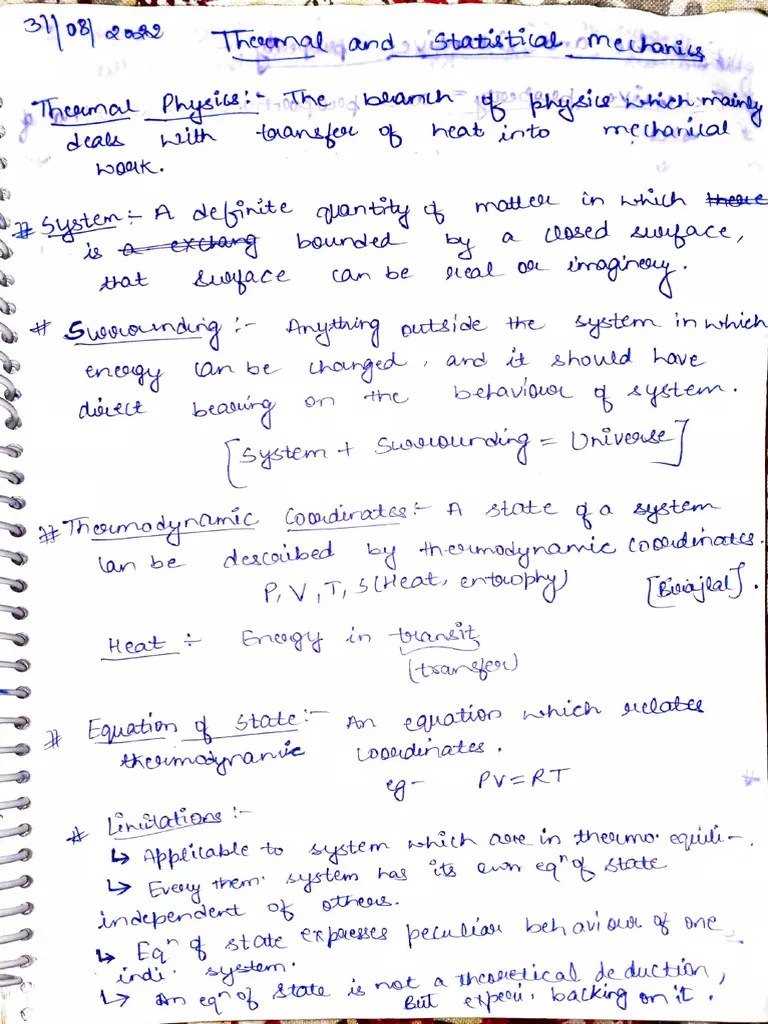 31/08/2022
Thermal and Statistical Mechanics
Thermal Physics:- The branch of physics which mainly
deals with transfer of heat into mechanical
work.
# System:- A definite quantity of matter in which there
is a exchang bounded by a closed surface,
that surface can be real or imaginery.
# Surrounding:- Anything outside the system in which
energy can be changed, and it should have
direct bearing on the behaviour of system.
[System + Surrounding = Universe]
# Thermodynamic Coordinates:- A state of a system
can be described by thermodynamic coordinates.
P, V, T, S (Heat, entrophy) [Birajlal].
Heat :- Energy in transit
(transfer)
# Equation of State:- An equation which relates
thermodynamic coordinates.
eg- PV=RT
# Limitations:-
↳ Applicable to system which are in thermo. equili-.
↳ Every them. system has its own eqⁿ of state
independent of others.
↳ Eqⁿ of state expresses peculiar behaviour of one
indi. system.
↳ An eqⁿ of state is not a theoretical deduction,
But experi. backing on it.